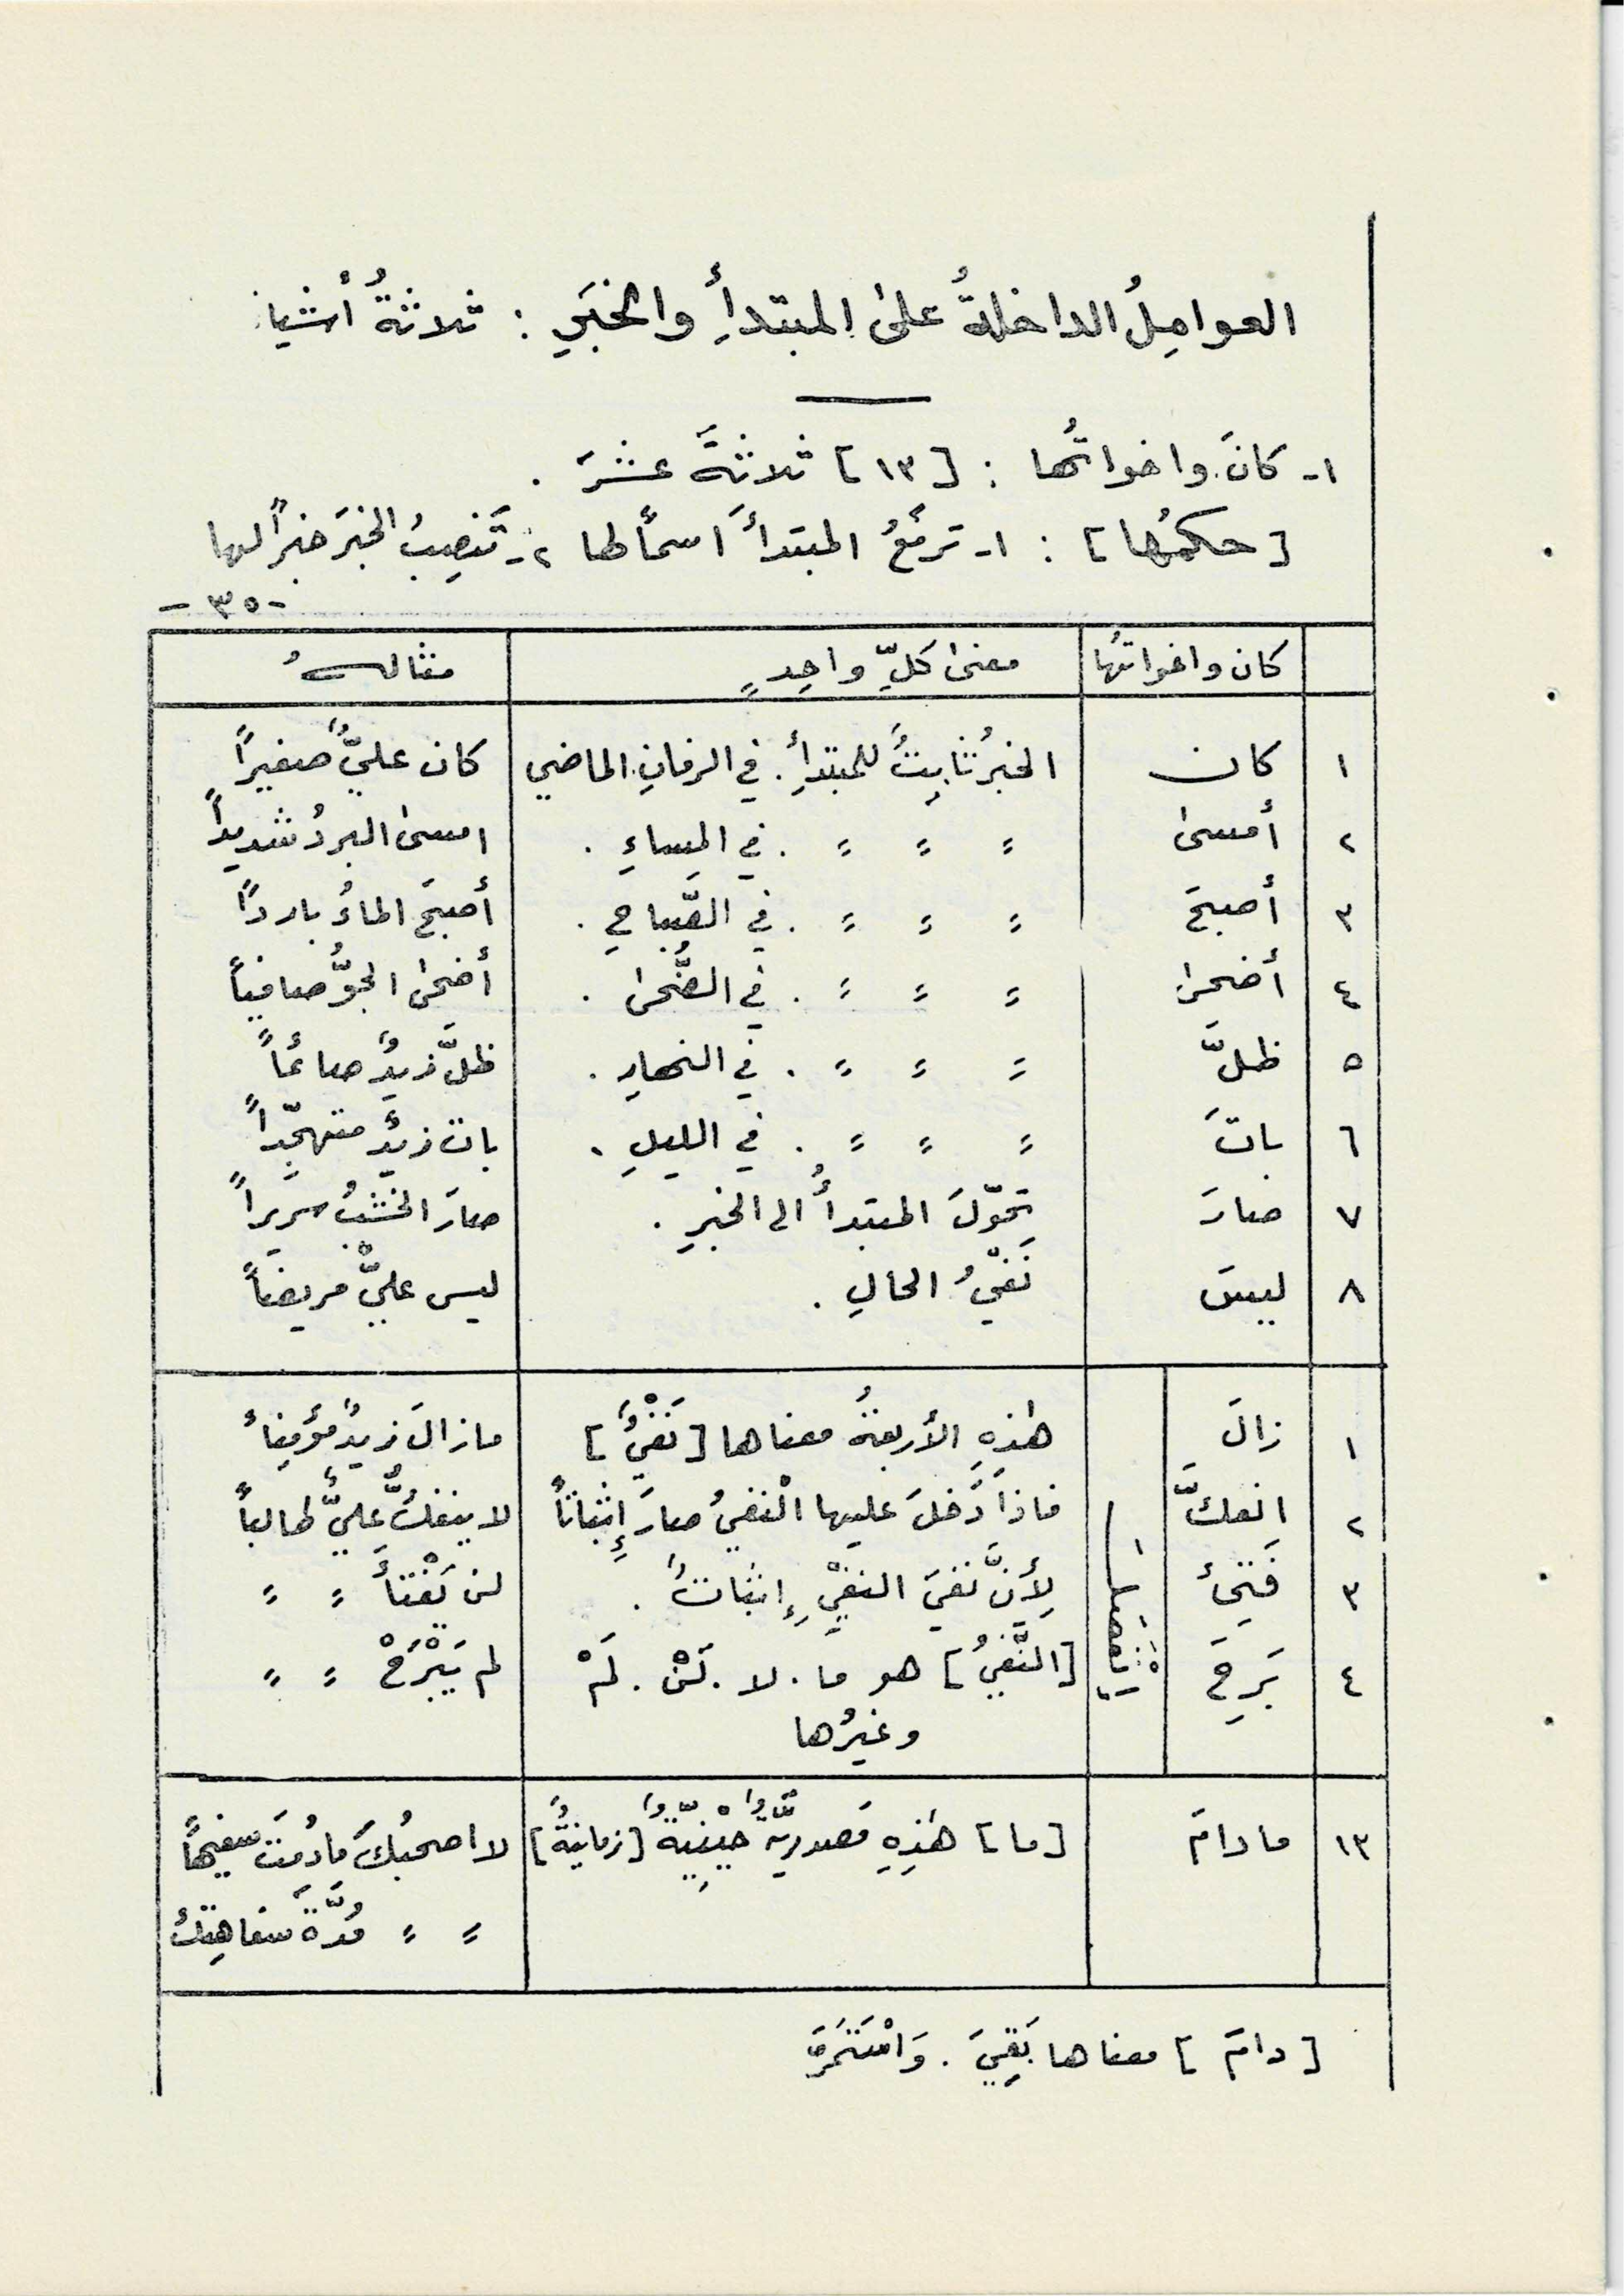 العوامِلُ الداخلةُ علىٰ المبتدأِ والخبَرِ : ثلاثةُ أشياءٍ
١- كانَ واخواتُها : [١٣] ثلاثةَ عشَرَ .
[حكمُها] : ١- ترفعُ المبتدأَ اسمًا لها ٢- تَنصِبُ الخبرَ خبرًا لها
-٣٥-
كان واخواتُها | معنىٰ كلِّ واحِدٍ | مثالهُ
١ | كان | الخبرُ ثابِتٌ للمبتدأِ . في الزمانِ الماضي | كان عليٌّ صغيرًا
٢ | أمسىٰ | = = = . في المساءِ . | امسىٰ البردُ شديدًا
٣ | أصبحَ | = = = . في الصّباحِ . | أصبحَ الماءُ باردًا
٤ | أضحىٰ | = = = . في الضُّحىٰ . | أضحىٰ الجوُّ صافيًا
٥ | ظلَّ | = = = . في النهارِ . | ظلَّ زيدٌ صائمًا
٦ | باتَ | = = = . في الليلِ . | بات زيدٌ متهجّدًا
٧ | صارَ | تحوّلَ المبتدأُ الى الخبرِ . | صارَ الخشبُ سريرًا
٨ | ليسَ | نَفيُ الحالِ . | ليس عليٌّ مريضًا
١ | زالَ | هٰذِهِ الأربعةُ معناها [نَفْيٌ] | مازالَ زيدٌ مؤمِنًا
٢ | انفكَّ | فاذا دَخلَ عليها النفيُ صارَ إِثباتًا | لا ينفكُّ عليٌّ طالبًا
٣ | فَتِئَ | لِأَنَّ نفيَ النفيِ إِثباتٌ . | لن تَفْتَأَ = =
٤ | بَرِحَ | [النَّفيُ] هو ما . لا . لَنْ . لَمْ | لم يَبْرَحْ = =
وغيرُها
١٣ | مادامَ | [ما] هٰذِهِ مَصدريّةٌ حينِيّةٌ [زمانيةٌ] | لا اصحبُكَ مادُمتَ سفيهًا
= = مُدَّةَ سفاهتِكَ
[دامَ] معناها بَقِيَ . وَاسْتَمَرَّ